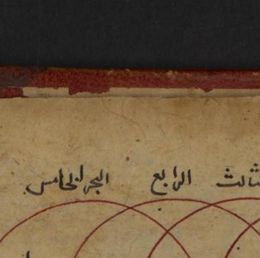 الثالث الرابع البحر الخامس